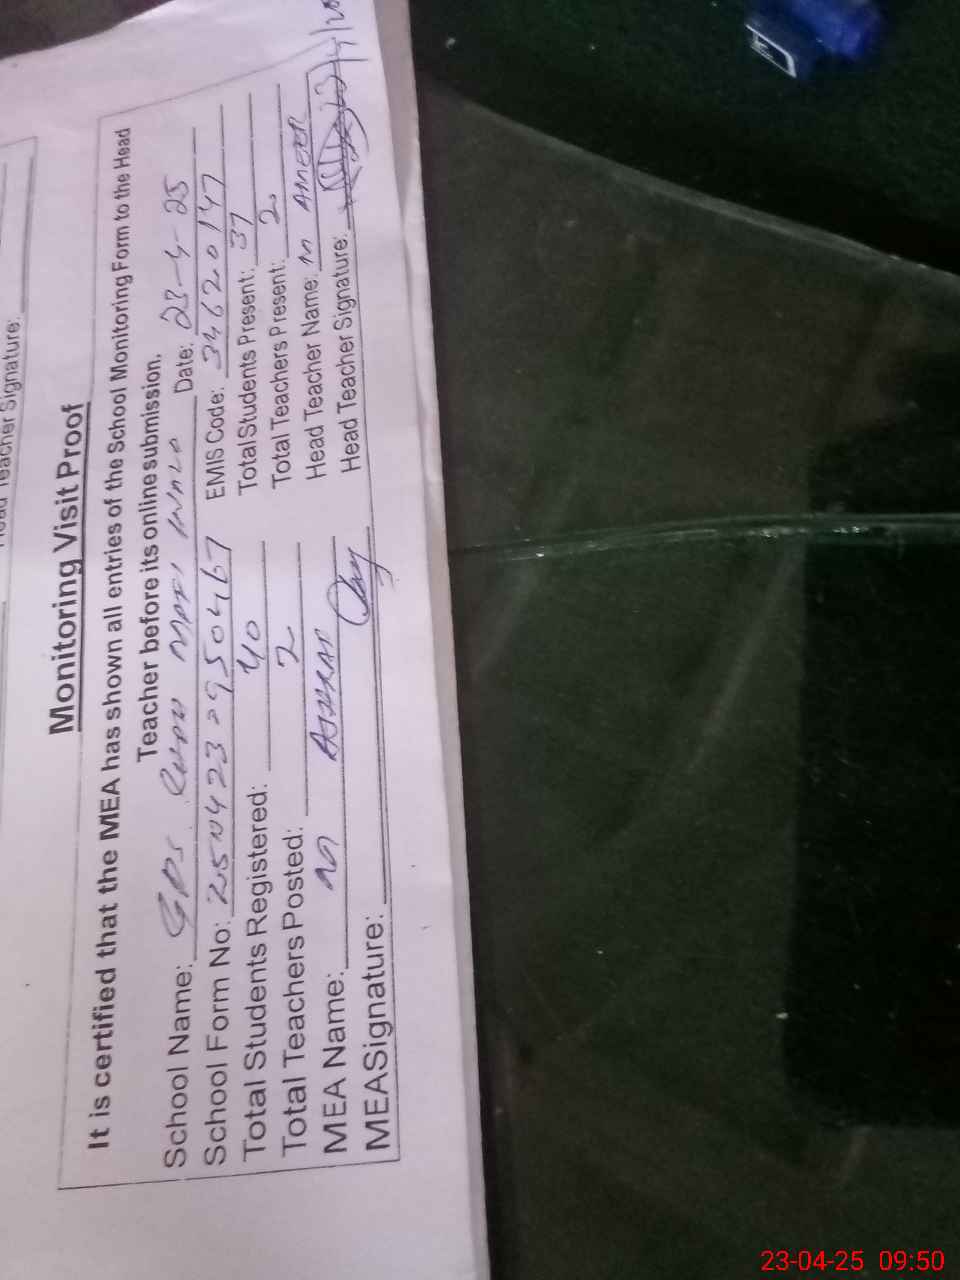 Teacher Signature:
Monitoring Visit Proof
It is certified that the MEA has shown all entries of the School Monitoring Form to the Head
Teacher before its online submission.
School Name: GPS Date: 23-4-25
School Form No: EMIS Code: 34620147
Total Students Registered: 40 Total Students Present: 37
Total Teachers Posted: 2 Total Teachers Present: 2
MEA Name: M ASHRAF Head Teacher Name: M AMEER
MEA Signature: Head Teacher Signature:
23-04-25 09:50